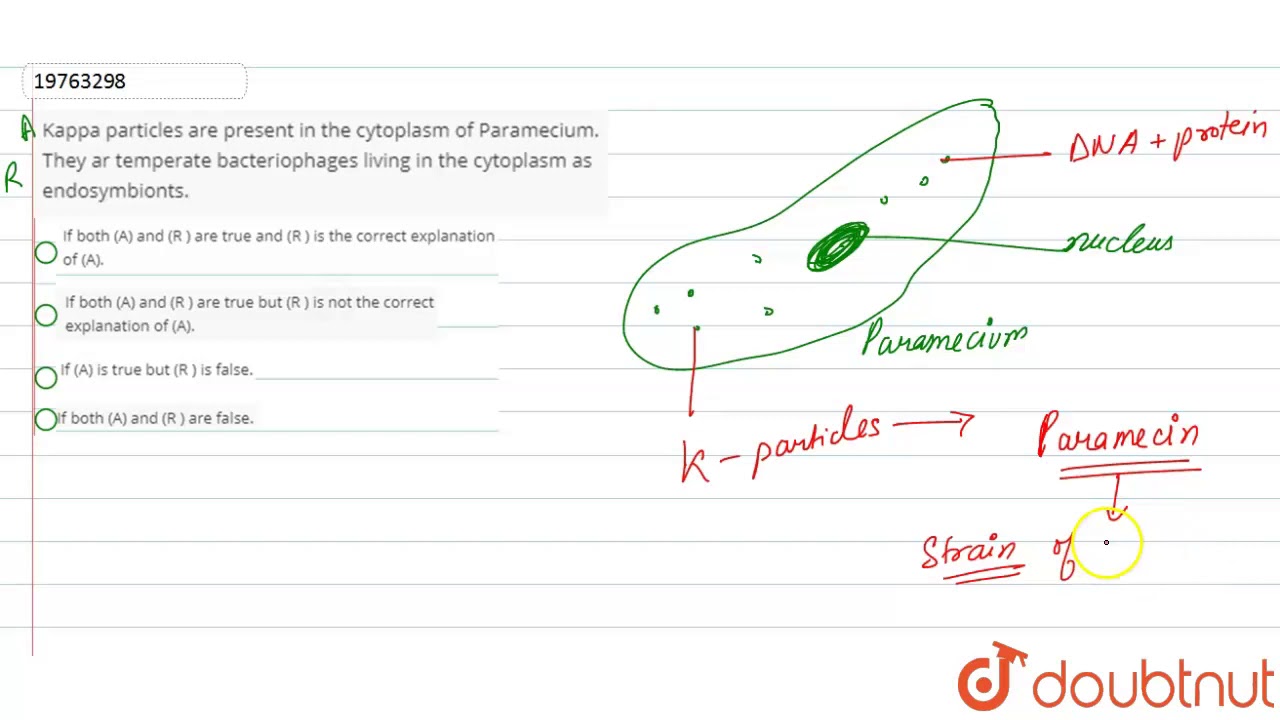 19763298
A Kappa particles are present in the cytoplasm of Paramecium.
R They ar temperate bacteriophages living in the cytoplasm as
endosymbionts.
If both (A) and (R ) are true and (R ) is the correct explanation
of (A).
If both (A) and (R ) are true but (R ) is not the correct
explanation of (A).
If (A) is true but (R ) is false.
If both (A) and (R ) are false.
DNA + protein
nucleus
Paramecium
K - particles → Paramecin
Strain of
doubtnut